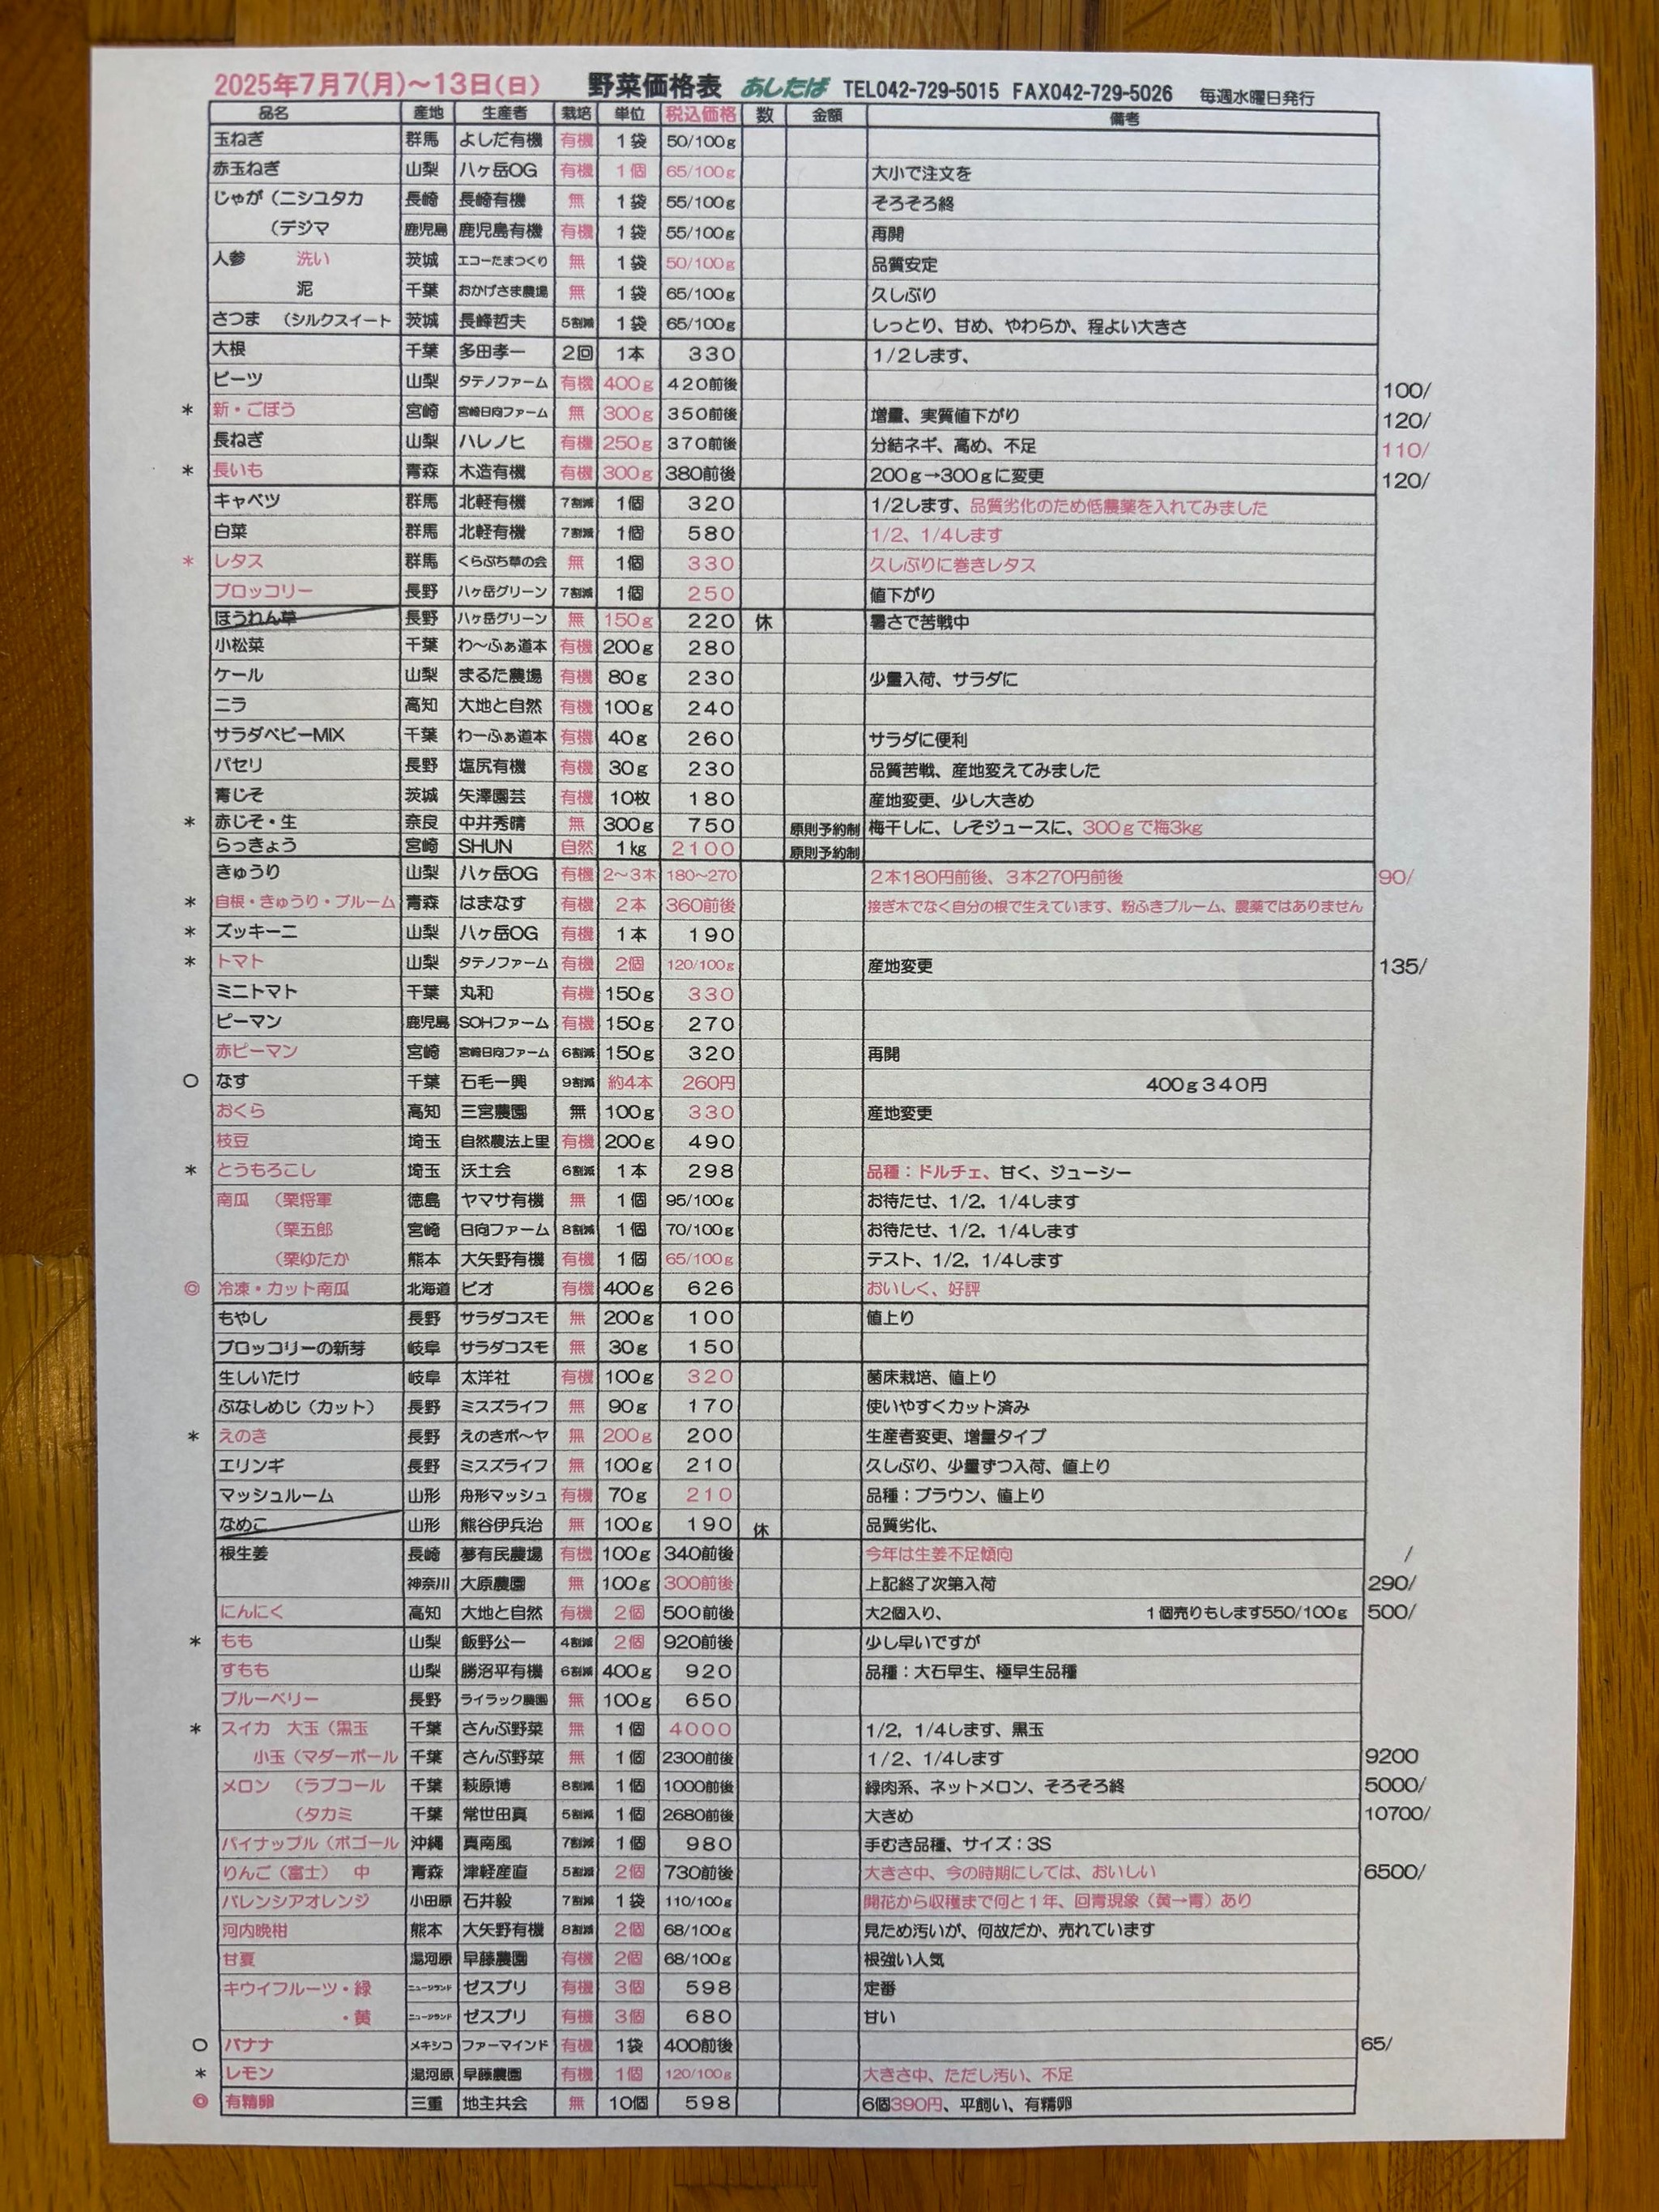 2025年7月7(月)～13日(日) 野菜価格表 あしたば TEL042-729-5015 FAX042-729-5026 毎週水曜日発行
品名 産地 生産者 栽培 単位 税込価格 数 金額 備考
玉ねぎ 群馬 よしだ有機 有機 1袋 50/100g
赤玉ねぎ 山梨 八ヶ岳OG 有機 1個 65/100g 大小で注文を
じゃが（ニシユタカ 長崎 長崎有機 無 1袋 55/100g そろそろ終
（デジマ 鹿児島 鹿児島有機 有機 1袋 55/100g 再開
人参 洗い 茨城 エコーたまつくり 無 1袋 50/100g 品質安定
泥 千葉 おかげさま農場 無 1袋 65/100g 久しぶり
さつま （シルクスイート 茨城 長峰哲夫 5割減 1袋 65/100g しっとり、甘め、やわらか、程よい大きさ
大根 千葉 多田孝一 2回 1本 330 1/2します、
ビーツ 山梨 タテノファーム 有機 400g 420前後 100/
* 新・ごぼう 宮崎 宮崎日向ファーム 無 300g 350前後 増量、実質値下がり 120/
長ねぎ 山梨 ハレノヒ 有機 250g 370前後 分結ネギ、高め、不足 110/
* 長いも 青森 木造有機 有機 300g 380前後 200g→300gに変更 120/
キャベツ 群馬 北軽有機 7割減 1個 320 1/2します、品質劣化のため低農薬を入れてみました
白菜 群馬 北軽有機 7割減 1個 580 1/2、1/4します
* レタス 群馬 くらぶち草の会 無 1個 330 久しぶりに巻きレタス
ブロッコリー 長野 ハヶ岳グリーン 7割減 1個 250 値下がり
ほうれん草 長野 ハヶ岳グリーン 無 150g 220 休 暑さで苦戦中
小松菜 千葉 わ～ふぁ道本 有機 200g 280
ケール 山梨 まるた農場 有機 80g 230 少量入荷、サラダに
ニラ 高知 大地と自然 有機 100g 240
サラダベビーMIX 千葉 わーふぁ道本 有機 40g 260 サラダに便利
パセリ 長野 塩尻有機 有機 30g 230 品質苦戦、産地変えてみました
青じそ 茨城 矢澤園芸 有機 10枚 180 産地変更、少し大きめ
* 赤じそ・生 奈良 中井秀晴 無 300g 750 原則予約制 梅干しに、しそジュースに、300gで梅3kg
らっきょう 宮崎 SHUN 自然 1kg 2100 原則予約制
きゅうり 山梨 八ヶ岳OG 有機 2～3本 180～270 2本180円前後、3本270円前後 90/
* 自根・きゅうり・ブルーム 青森 はまなす 有機 2本 360前後 接ぎ木でなく自分の根で生えています、粉ふきブルーム、農薬ではありません
* ズッキーニ 山梨 八ヶ岳OG 有機 1本 190
* トマト 山梨 タテノファーム 有機 2個 120/100g 産地変更 135/
ミニトマト 千葉 丸和 有機 150g 330
ピーマン 鹿児島 SOHファーム 有機 150g 270
赤ピーマン 宮崎 宮崎日向ファーム 6割減 150g 320 再開
○ なす 千葉 石毛一興 9割減 約4本 260円 400g340円
おくら 高知 三宮農園 無 100g 330 産地変更
枝豆 埼玉 自然農法上里 有機 200g 490
* とうもろこし 埼玉 沃土会 6割減 1本 298 品種：ドルチェ、甘く、ジューシー
南瓜 （栗将軍 徳島 ヤマサ有機 無 1個 95/100g お待たせ、1/2，1/4します
（栗五郎 宮崎 日向ファーム 8割減 1個 70/100g お待たせ、1/2，1/4します
（栗ゆたか 熊本 大矢野有機 有機 1個 65/100g テスト、1/2，1/4します
◎ 冷凍・カット南瓜 北海道 ビオ 有機 400g 626 おいしく、好評
もやし 長野 サラダコスモ 無 200g 100 値上り
ブロッコリーの新芽 岐阜 サラダコスモ 無 30g 150
生しいたけ 岐阜 太洋社 有機 100g 320 菌床栽培、値上り
ぶなしめじ（カット） 長野 ミスズライフ 無 90g 170 使いやすくカット済み
* えのき 長野 えのきボ～ヤ 無 200g 200 生産者変更、増量タイプ
エリンギ 長野 ミスズライフ 無 100g 210 久しぶり、少量ずつ入荷、値上り
マッシュルーム 山形 舟形マッシュ 有機 70g 210 品種：ブラウン、値上り
なめこ 山形 熊谷伊兵治 無 100g 190 休 品質劣化、
根生姜 長崎 夢有民農場 有機 100g 340前後 今年は生姜不足傾向 /
神奈川 大原農園 無 100g 300前後 上記終了次第入荷 290/
にんにく 高知 大地と自然 有機 2個 500前後 大2個入り、 1個売りもします550/100g 500/
* もも 山梨 飯野公一 4割減 2個 920前後 少し早いですが
すもも 山梨 勝沼平有機 6割減 400g 920 品種：大石早生、極早生品種
ブルーベリー 長野 ライラック農園 無 100g 650
* スイカ 大玉（黒玉 千葉 さんぶ野菜 無 1個 4000 1/2，1/4します、黒玉
小玉（マダーボール 千葉 さんぶ野菜 無 1個 2300前後 1/2、1/4します 9200
メロン （ラブコール 千葉 萩原博 8割減 1個 1000前後 緑肉系、ネットメロン、そろそろ終 5000/
（タカミ 千葉 常世田真 5割減 1個 2680前後 大きめ 10700/
パイナップル（ボゴール 沖縄 真南風 7割減 1個 980 手むき品種、サイズ：3S
りんご（富士） 中 青森 津軽産直 5割減 2個 730前後 大きさ中、今の時期にしては、おいしい 6500/
バレンシアオレンジ 小田原 石井毅 7割減 1袋 110/100g 開花から収穫まで何と1年、回青現象（黄→青）あり
河内晩柑 熊本 大矢野有機 8割減 2個 68/100g 見ため汚いが、何故だか、売れています
甘夏 湯河原 早藤農園 有機 2個 68/100g 根強い人気
キウイフルーツ・緑 ニュージランド ゼスプリ 有機 3個 598 定番
・黄 ニュージランド ゼスプリ 有機 3個 680 甘い
○ バナナ メキシコ ファーマインド 有機 1袋 400前後 65/
* レモン 湯河原 早藤農園 有機 1個 120/100g 大きさ中、ただし汚い、不足
◎ 有精卵 三重 地主共会 無 10個 598 6個390円、平飼い、有精卵